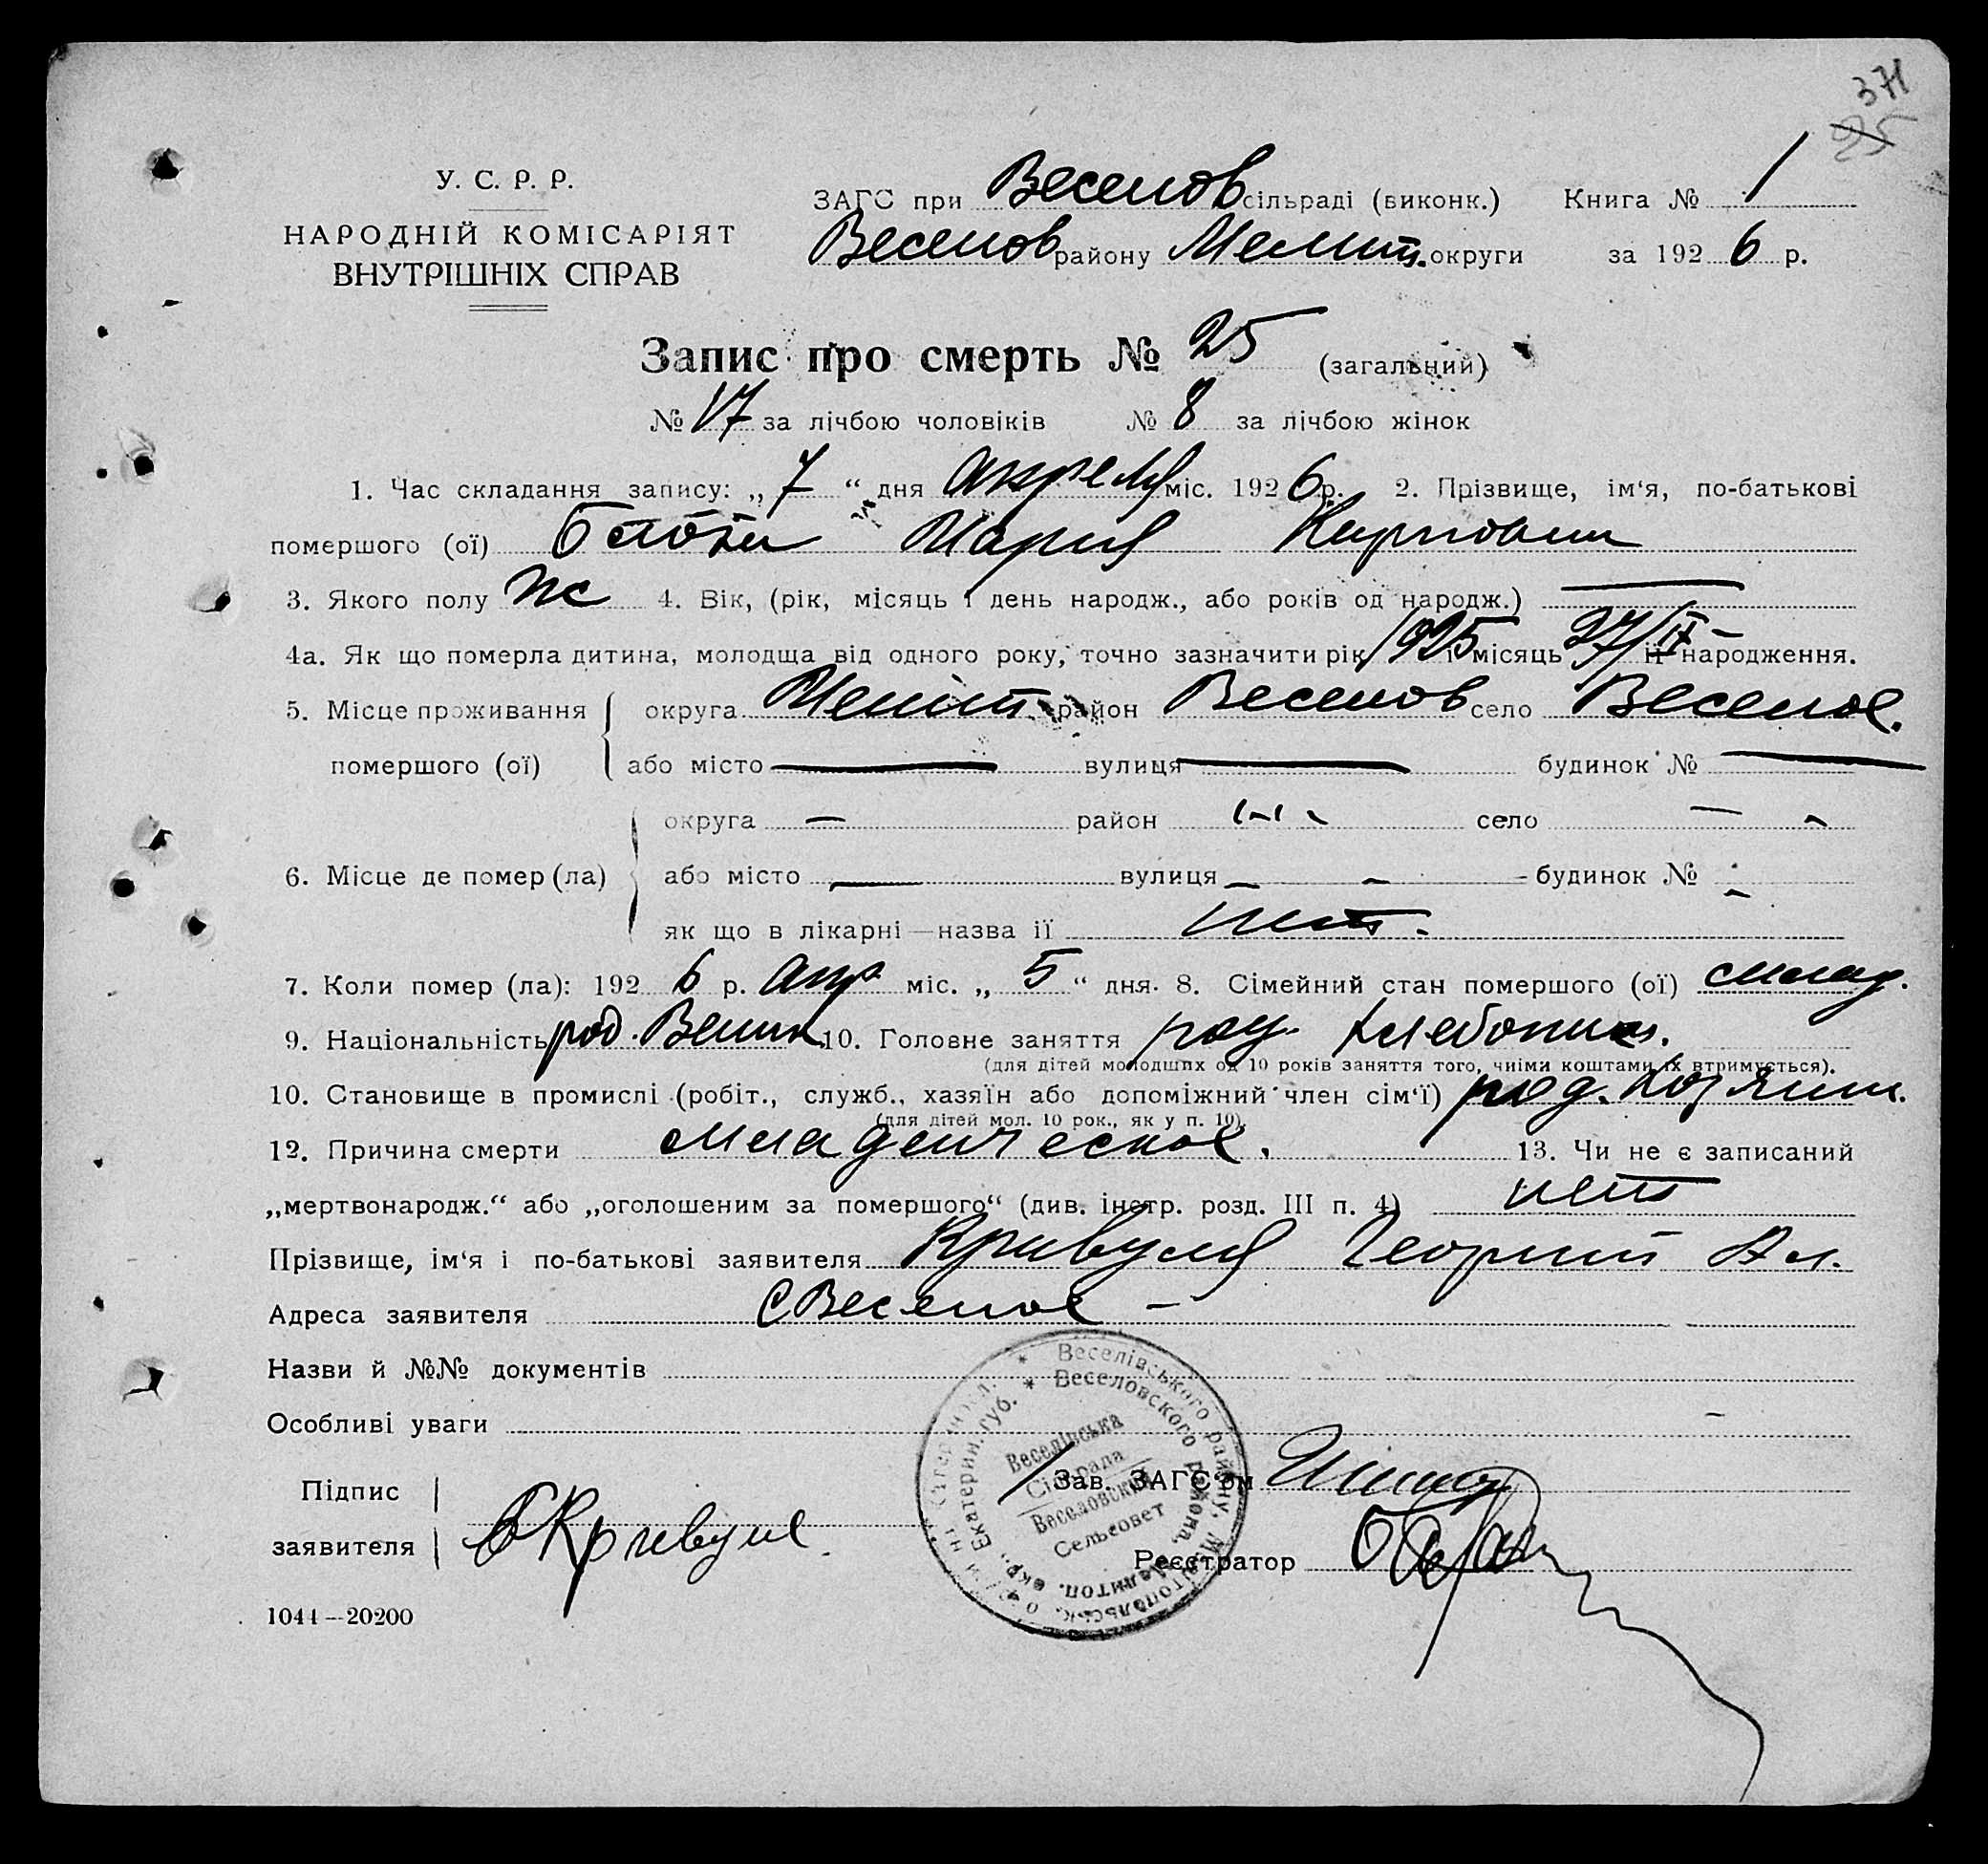 371
25
У. С. Р. Р.
НАРОДНІЙ КОМІСАРІЯТ
ВНУТРІШНІХ СПРАВ
ЗАГС при Веселов сільраді (виконк.) Книга № 1
Веселов району Мелит. округи за 1926 р.
Запис про смерть № 25 (загальний)
№ 17 за лічбою чоловіків № 8 за лічбою жінок
1. Час складання запису: „7“ дня апреля міс. 1926 р. 2. Прізвище, ім‘я, по-батькові
помершого (ої) Мария
3. Якого полу ж 4. Вік, (рік, місяць і день народж., або років од народж.) —
4а. Як що померла дитина, молодща від одного року, точно зазначити рік 1925 і місяць 27/IX її народження.
5. Місце проживання округа Мелит. район Веселов село Веселое.
помершого (ої) або місто — вулиця — будинок № —
округа — район село —
6. Місце де помер (ла) або місто — вулиця — будинок № —
як що в лікарні—назва її нет.
7. Коли помер (ла): 1926 р. апр міс. „5“ дня. 8. Сімейний стан помершого (ої) млад.
9. Національність род. Велик. 10. Головне заняття род. хлебопаш.
(для дітей молодших од 10 років заняття того, чиїми коштами їх втримується).
10. Становище в промислі (робіт., служб., хазяїн або допоміжний член сім‘ї) род. хозяин.
(для дітей мол. 10 рок., як у п. 10).
12. Причина смерти младенческое. 13. Чи не є записаний
„мертвонародж.“ або „оголошеним за помершого“ (див. інстр. розд. III п. 4) нет
Прізвище, ім‘я і по-батькові заявителя Кривуля Георгий Ал.
Адреса заявителя с Веселое —
Назви й №№ документів
Особливі уваги —
Веселівського району, Мелітопольськ. округи на Катериносл.
Веселовского района, Мелитоп. окр., Екатерин. губ.
Веселівська
Сільрада
Веселовский
Сельсовет
Підпис
заявителя Кривуля
Зав. ЗАГС‘ом
Реєстратор
1044—20200